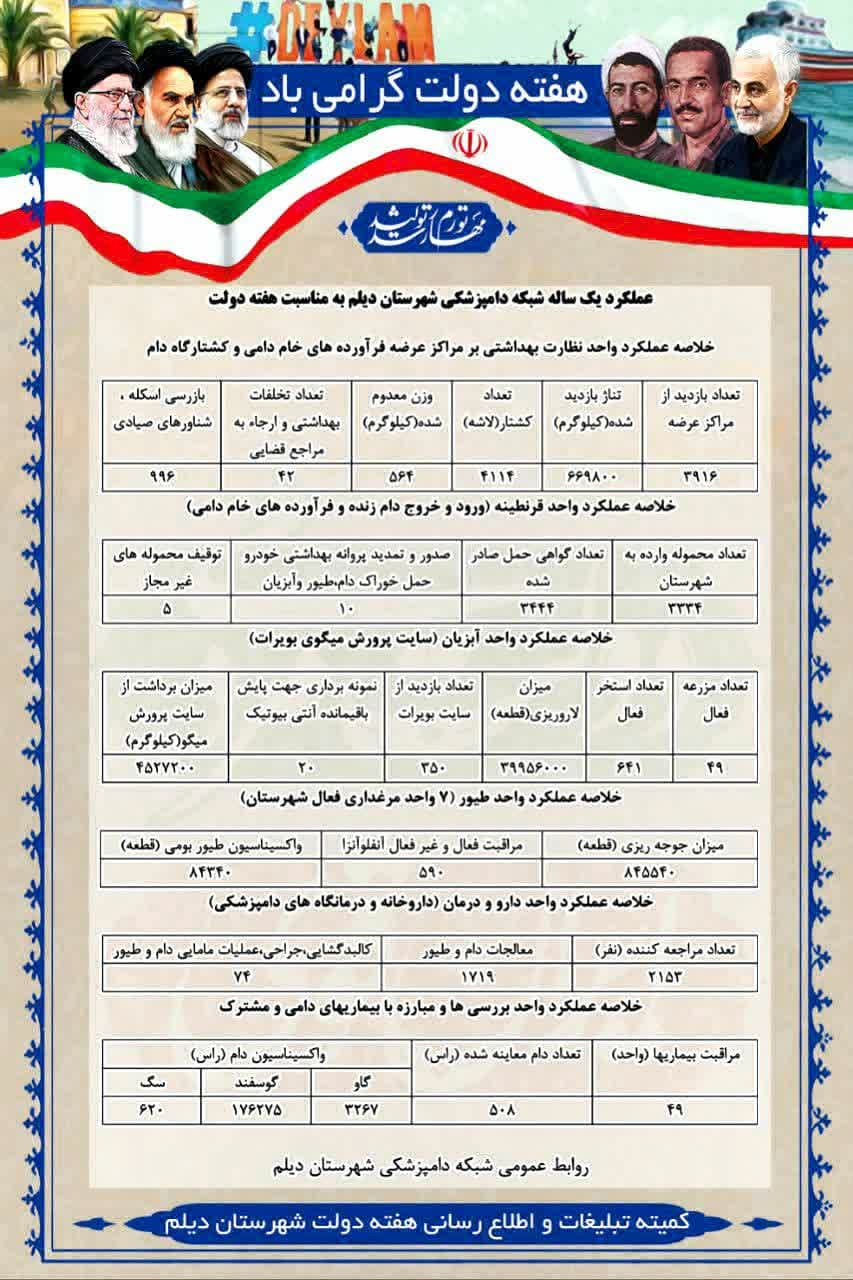 #DEYLAM
هفته دولت گرامی باد
مهار تورم رشد تولید
عملکرد یک ساله شبکه دامپزشکی شهرستان دیلم به مناسبت هفته دولت
خلاصه عملکرد واحد نظارت بهداشتی بر مراکز عرضه فرآورده های خام دامی و کشتارگاه دام
تعداد بازدید از مراکز عرضه | تناژ بازدید شده(کیلوگرم) | تعداد کشتار(لاشه) | وزن معدوم شده(کیلوگرم) | تعداد تخلفات بهداشتی و ارجاء به مراجع قضایی | بازرسی اسکله ، شناورهای صیادی
۳۹۱۶ | ۶۶۹۸۰۰ | ۴۱۱۴ | ۵۶۴ | ۴۲ | ۹۹۶
خلاصه عملکرد واحد قرنطینه (ورود و خروج دام زنده و فرآورده های خام دامی)
تعداد محموله وارده به شهرستان | تعداد گواهی حمل صادر شده | صدور و تمدید پروانه بهداشتی خودرو حمل خوراک دام،طیور وآبزیان | توقیف محموله های غیر مجاز
۳۳۳۴ | ۳۴۴۴ | ۱۰ | ۵
خلاصه عملکرد واحد آبزیان (سایت پرورش میگوی بویرات)
تعداد مزرعه فعال | تعداد استخر فعال | میزان لاروریزی(قطعه) | تعداد بازدید از سایت بویرات | نمونه برداری جهت پایش باقیمانده آنتی بیوتیک | میزان برداشت از سایت پرورش میگو(کیلوگرم)
۴۹ | ۶۴۱ | ۳۹۹۵۶۰۰۰ | ۳۵۰ | ۲۰ | ۴۵۲۷۲۰۰
خلاصه عملکرد واحد طیور (۷ واحد مرغداری فعال شهرستان)
میزان جوجه ریزی (قطعه) | مراقبت فعال و غیر فعال آنفلوآنزا | واکسیناسیون طیور بومی (قطعه)
۸۴۵۵۴۰ | ۵۹۰ | ۸۴۳۴۰
خلاصه عملکرد واحد دارو و درمان (داروخانه و درمانگاه های دامپزشکی)
تعداد مراجعه کننده (نفر) | معالجات دام و طیور | کالبدگشایی،جراحی،عملیات مامایی دام و طیور
۲۱۵۳ | ۱۷۱۹ | ۷۴
خلاصه عملکرد واحد بررسی ها و مبارزه با بیماریهای دامی و مشترک
مراقبت بیماریها (واحد) | تعداد دام معاینه شده (راس) | واکسیناسیون دام (راس)
گاو | گوسفند | سگ
۴۹ | ۵۰۸ | ۳۲۶۷ | ۱۷۶۲۷۵ | ۶۲۰
روابط عمومی شبکه دامپزشکی شهرستان دیلم
کمیته تبلیغات و اطلاع رسانی هفته دولت شهرستان دیلم